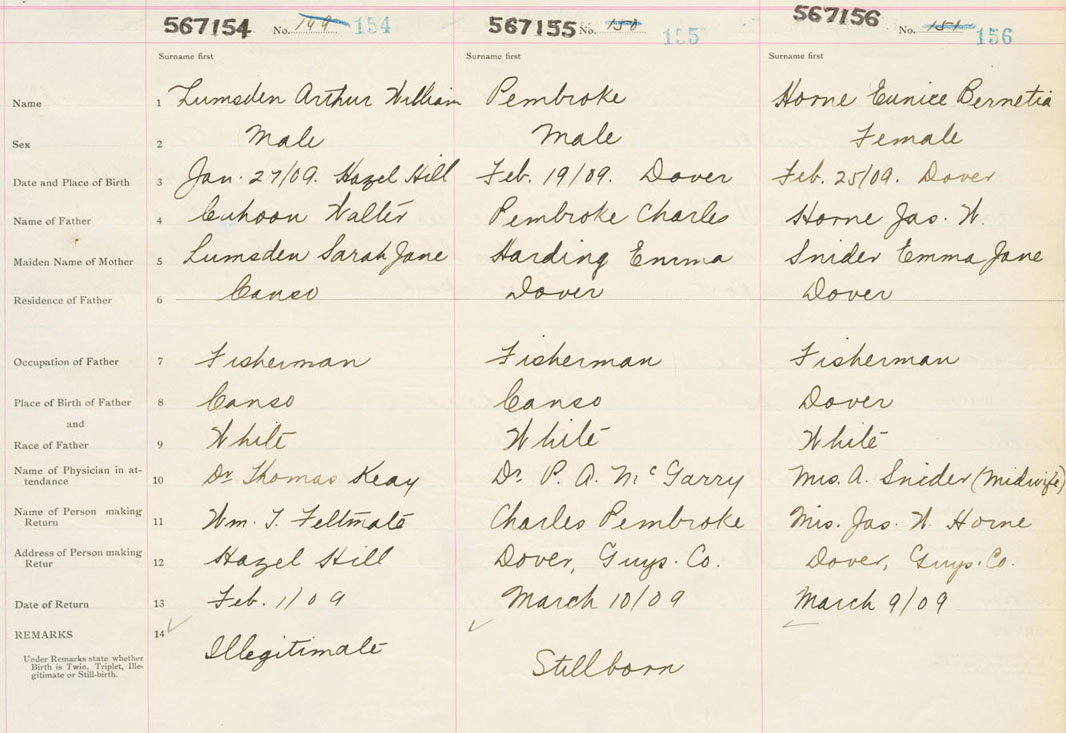 567154 No. 149 154 567155 No. 150 155 567156 No. 151 156
Surname first Surname first Surname first
Name 1 Lumsden Arthur William Pembroke Horne Eunice Bernetia
Sex 2 Male Male Female
Date and Place of Birth 3 Jan. 27/09. Hazel Hill Feb. 19/09. Dover Feb. 25/09. Dover
Name of Father 4 Cuhoon Walter Pembroke Charles Horne Jas. W.
Maiden Name of Mother 5 Lumsden Sarah Jane Harding Emma Snider Emma Jane
Residence of Father 6 Canso Dover Dover
Occupation of Father 7 Fisherman Fisherman Fisherman
Place of Birth of Father 8 Canso Canso Dover
and
Race of Father 9 White White White
Name of Physician in at-
tendance 10 Dr Thomas Keay Dr. P. A. McGarry Mrs. A. Snider (Midwife)
Name of Person making
Return 11 Wm. T. Feltmate Charles Pembroke Mrs. Jas. W Horne
Address of Person making
Retur 12 Hazel Hill Dover, Guys. Co. Dover, Guys. Co.
Date of Return 13 Feb. 1/09 March 10/09 March 9/09
REMARKS 14 Illegitimate Stillborn
Under Remarks state whether
Birth is Twin, Triplet, Ille-
gitimate or Still-birth.